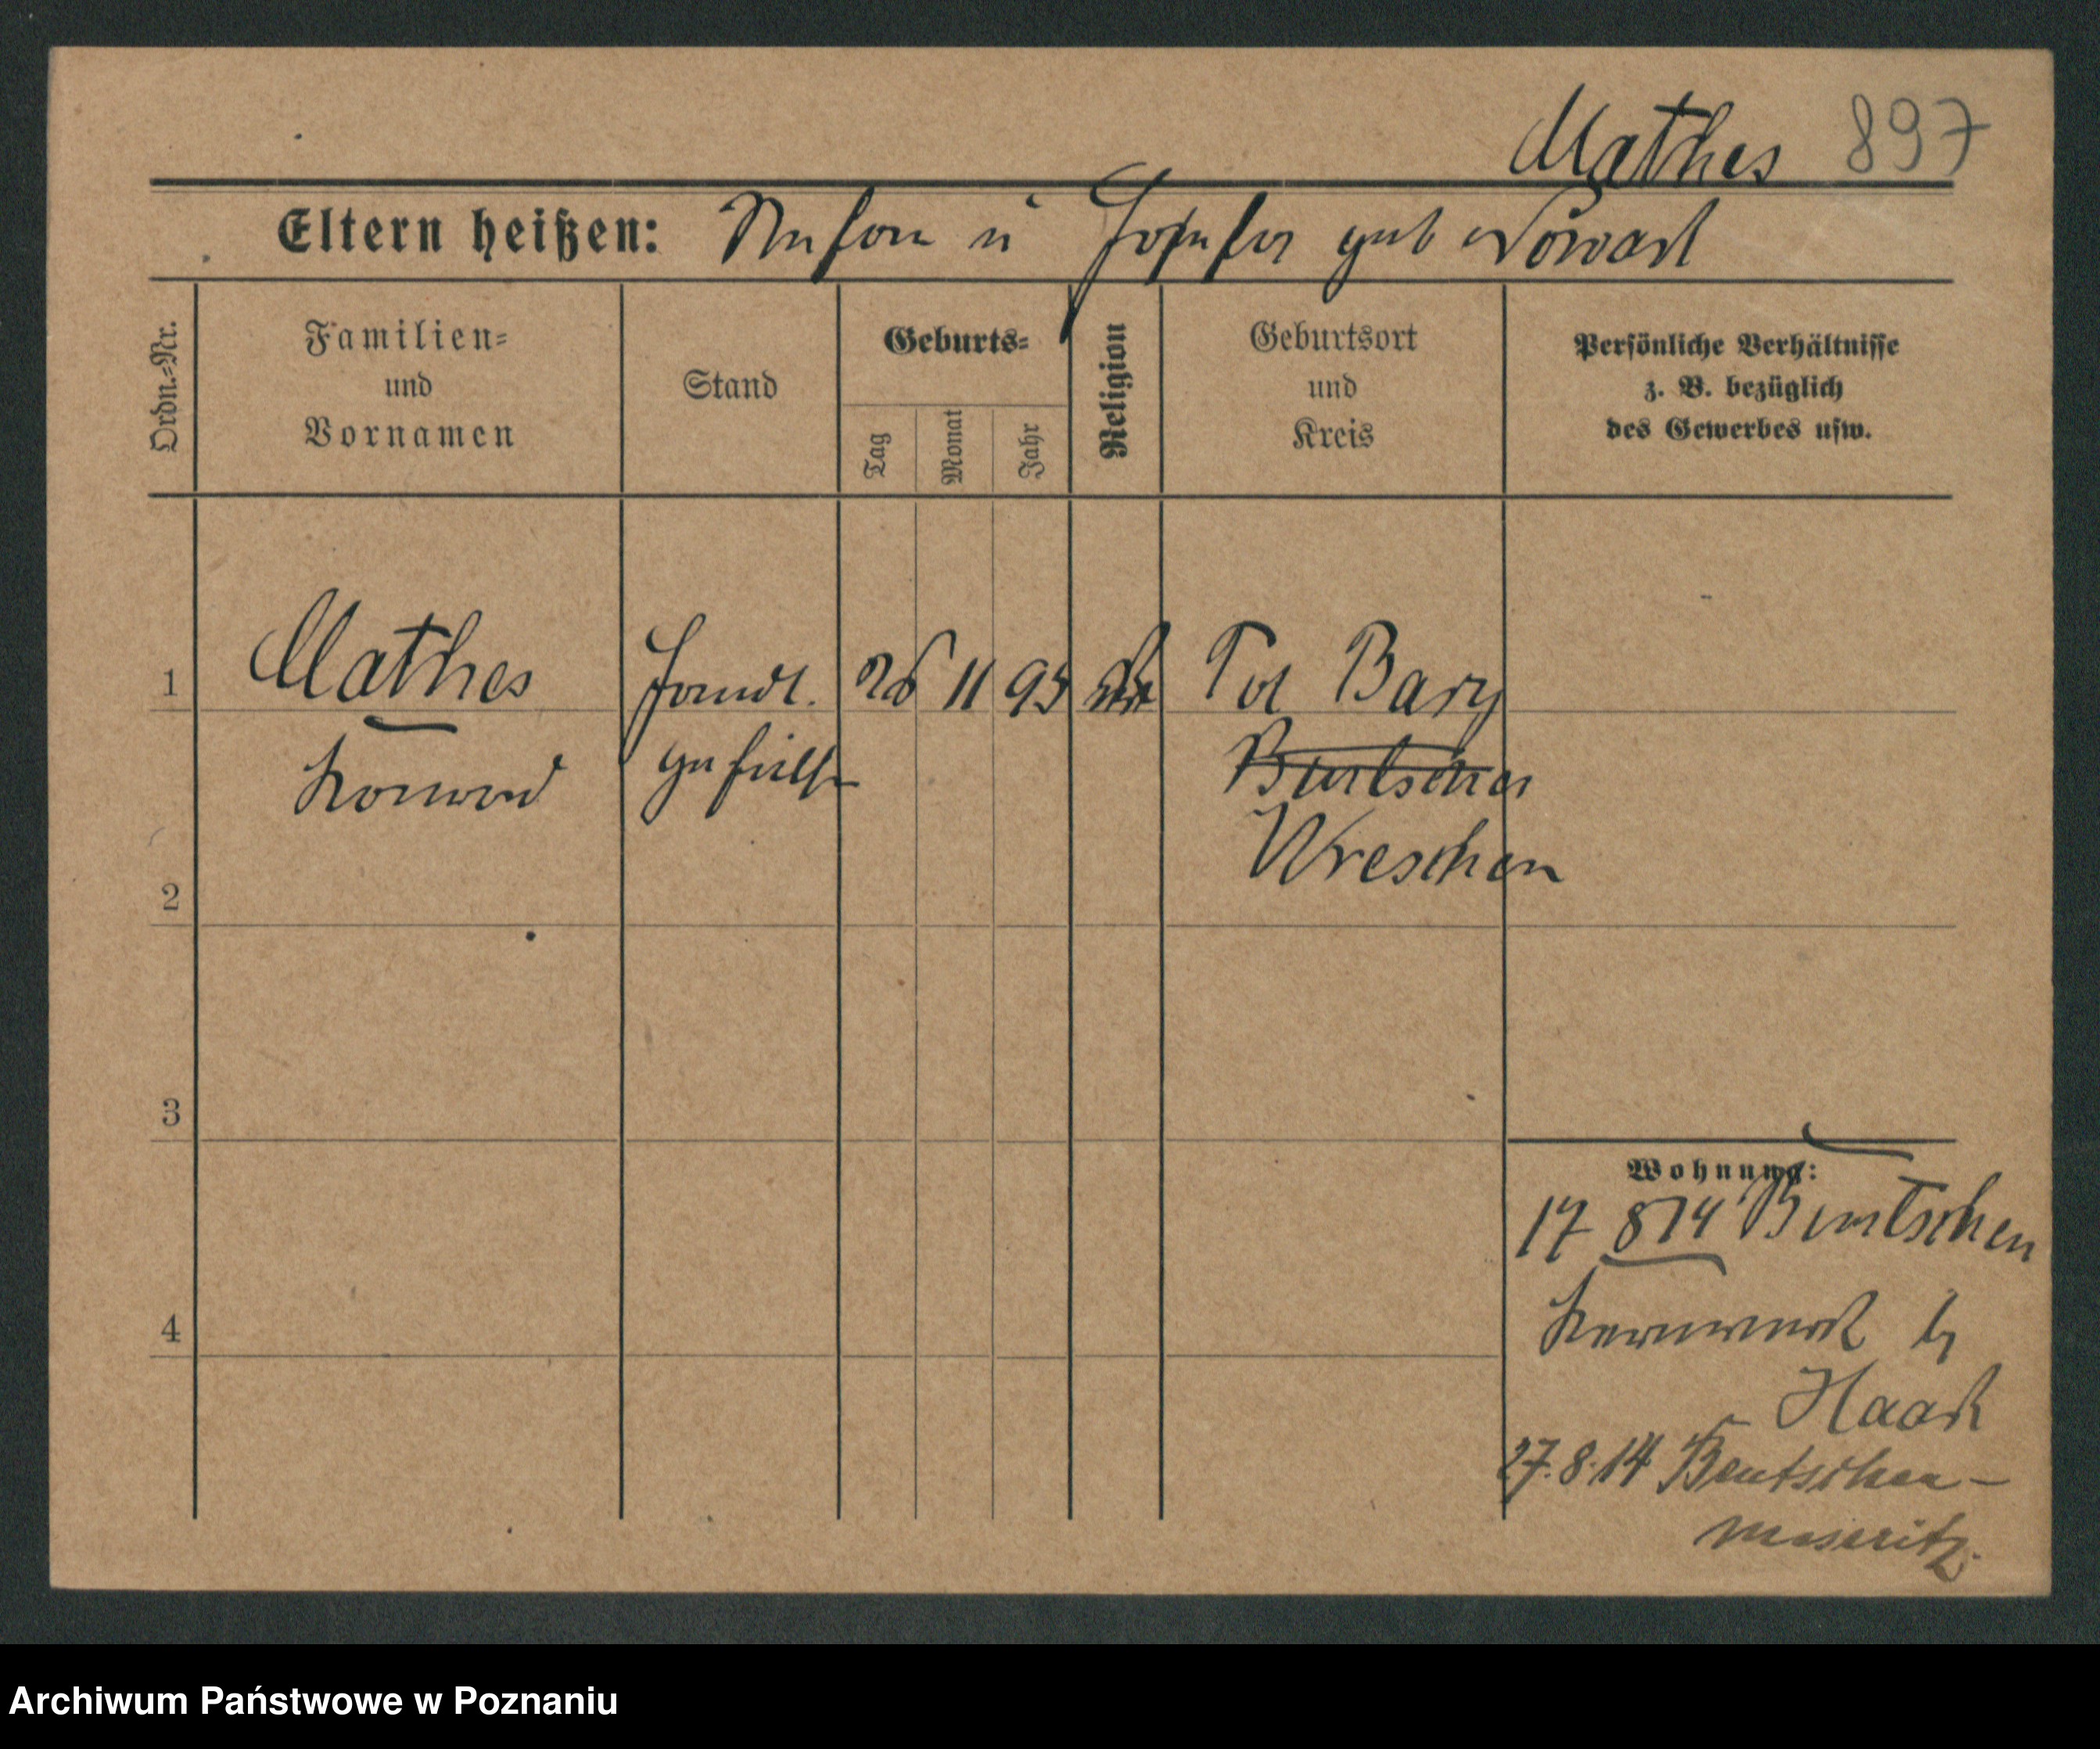 Mathes 897
Eltern heißen: u Josefa geb Nowack
Ordn.=Nr.
Familien=
und
Vornamen
Stand
Geburts=
Tag
Monat
Jahr
Religion
Geburtsort
und
Kreis
Persönliche Verhältnisse
z. B. bezüglich
des Gewerbes usw.
1 Mathes Handl. 26 11 95
Konrad gehilfe
Bentschen
Wreschen
2
3
Wohnung:
17 8 14 Bentschen
b/
Haack
4
27.8.14 Bentschen -
Meseritz.
Archiwum Państwowe w Poznaniu